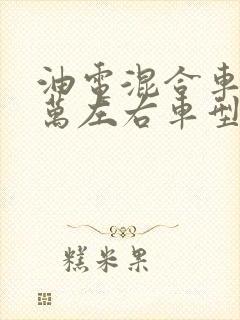 油電混合車
萬左右車型
糕米果